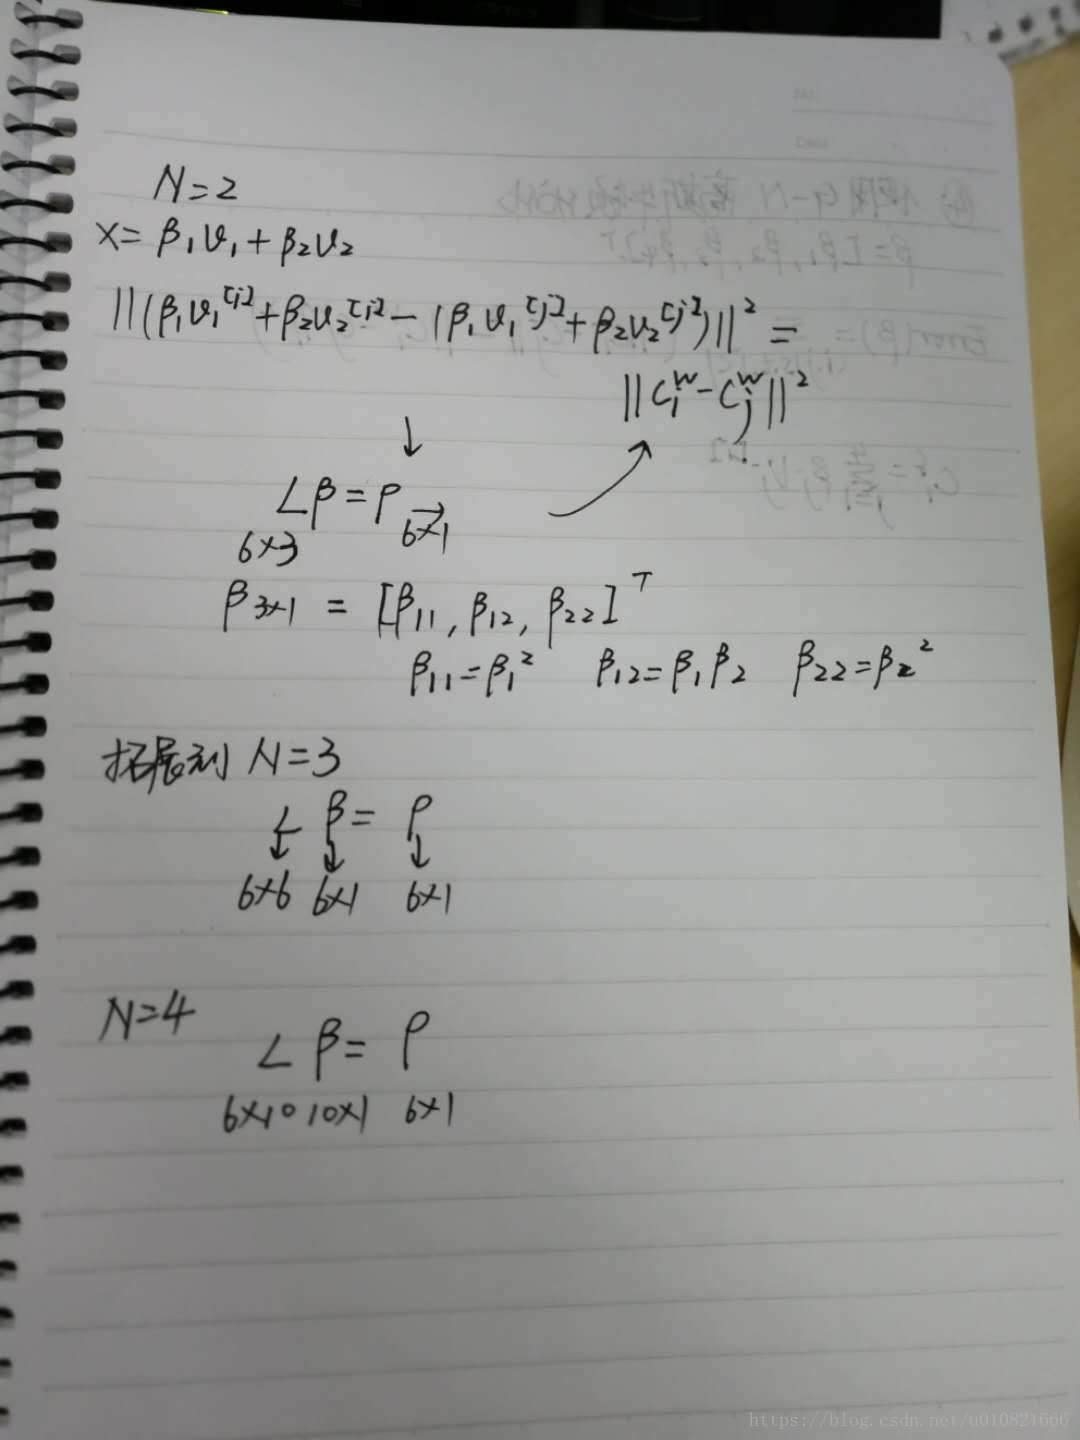 N=2
x= β₁v₁ + β₂v₂
||(β₁v₁^[i] + β₂v₂^[i] - (β₁v₁^[j] + β₂v₂^[j])||² =
||Cᵢʷ - Cⱼʷ||²
↓
Lβ = ρ →
6×3 6×1
β₃ₓ₁ = [β₁₁, β₁₂, β₂₂]ᵀ
β₁₁=β₁² β₁₂=β₁β₂ β₂₂=β₂²
拓展到 N=3
L β = ρ
↓ ↓ ↓
6×6 6×1 6×1
N=4
L β = ρ
6×10 10×1 6×1
https://blog.csdn.net/u010821666